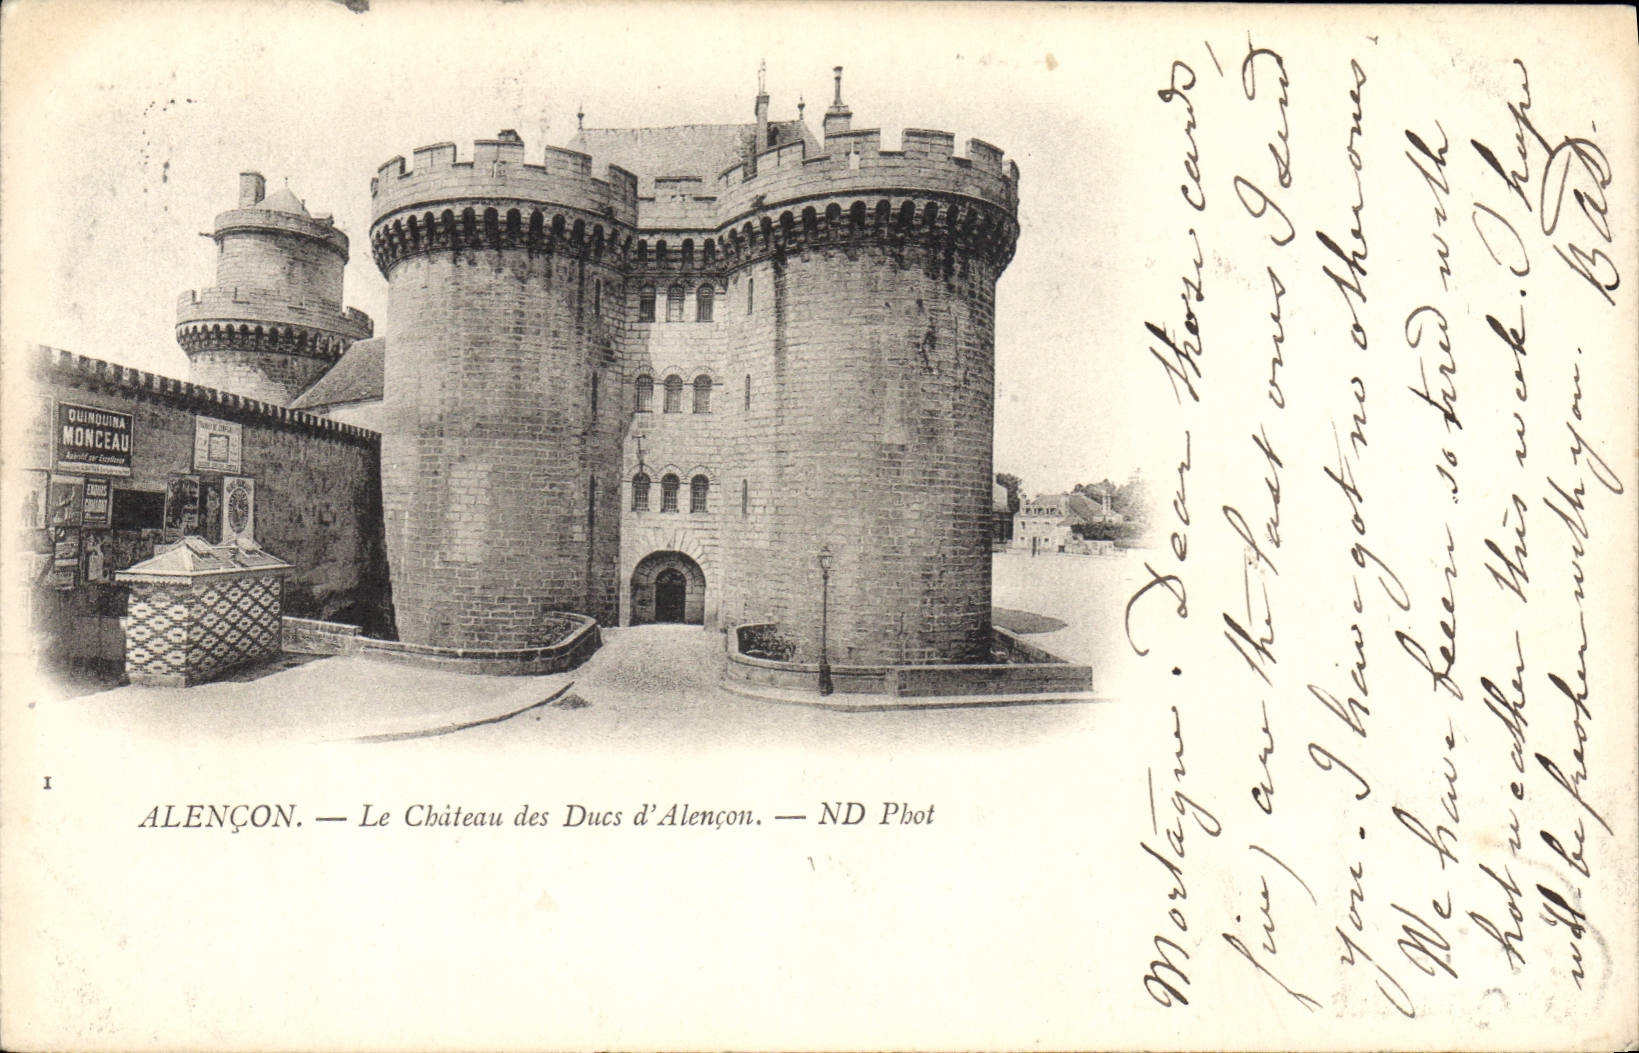 QUINQUINA
MONCEAU
Apéritif par Excellence
1
ALENÇON. — Le Château des Ducs d'Alençon. — ND Phot
Mortagne. Dear those cards
five) are the last ones I send
you. I have got no other ones
We have been so tired with
hot weather this week. I hope
will be fresher with you.